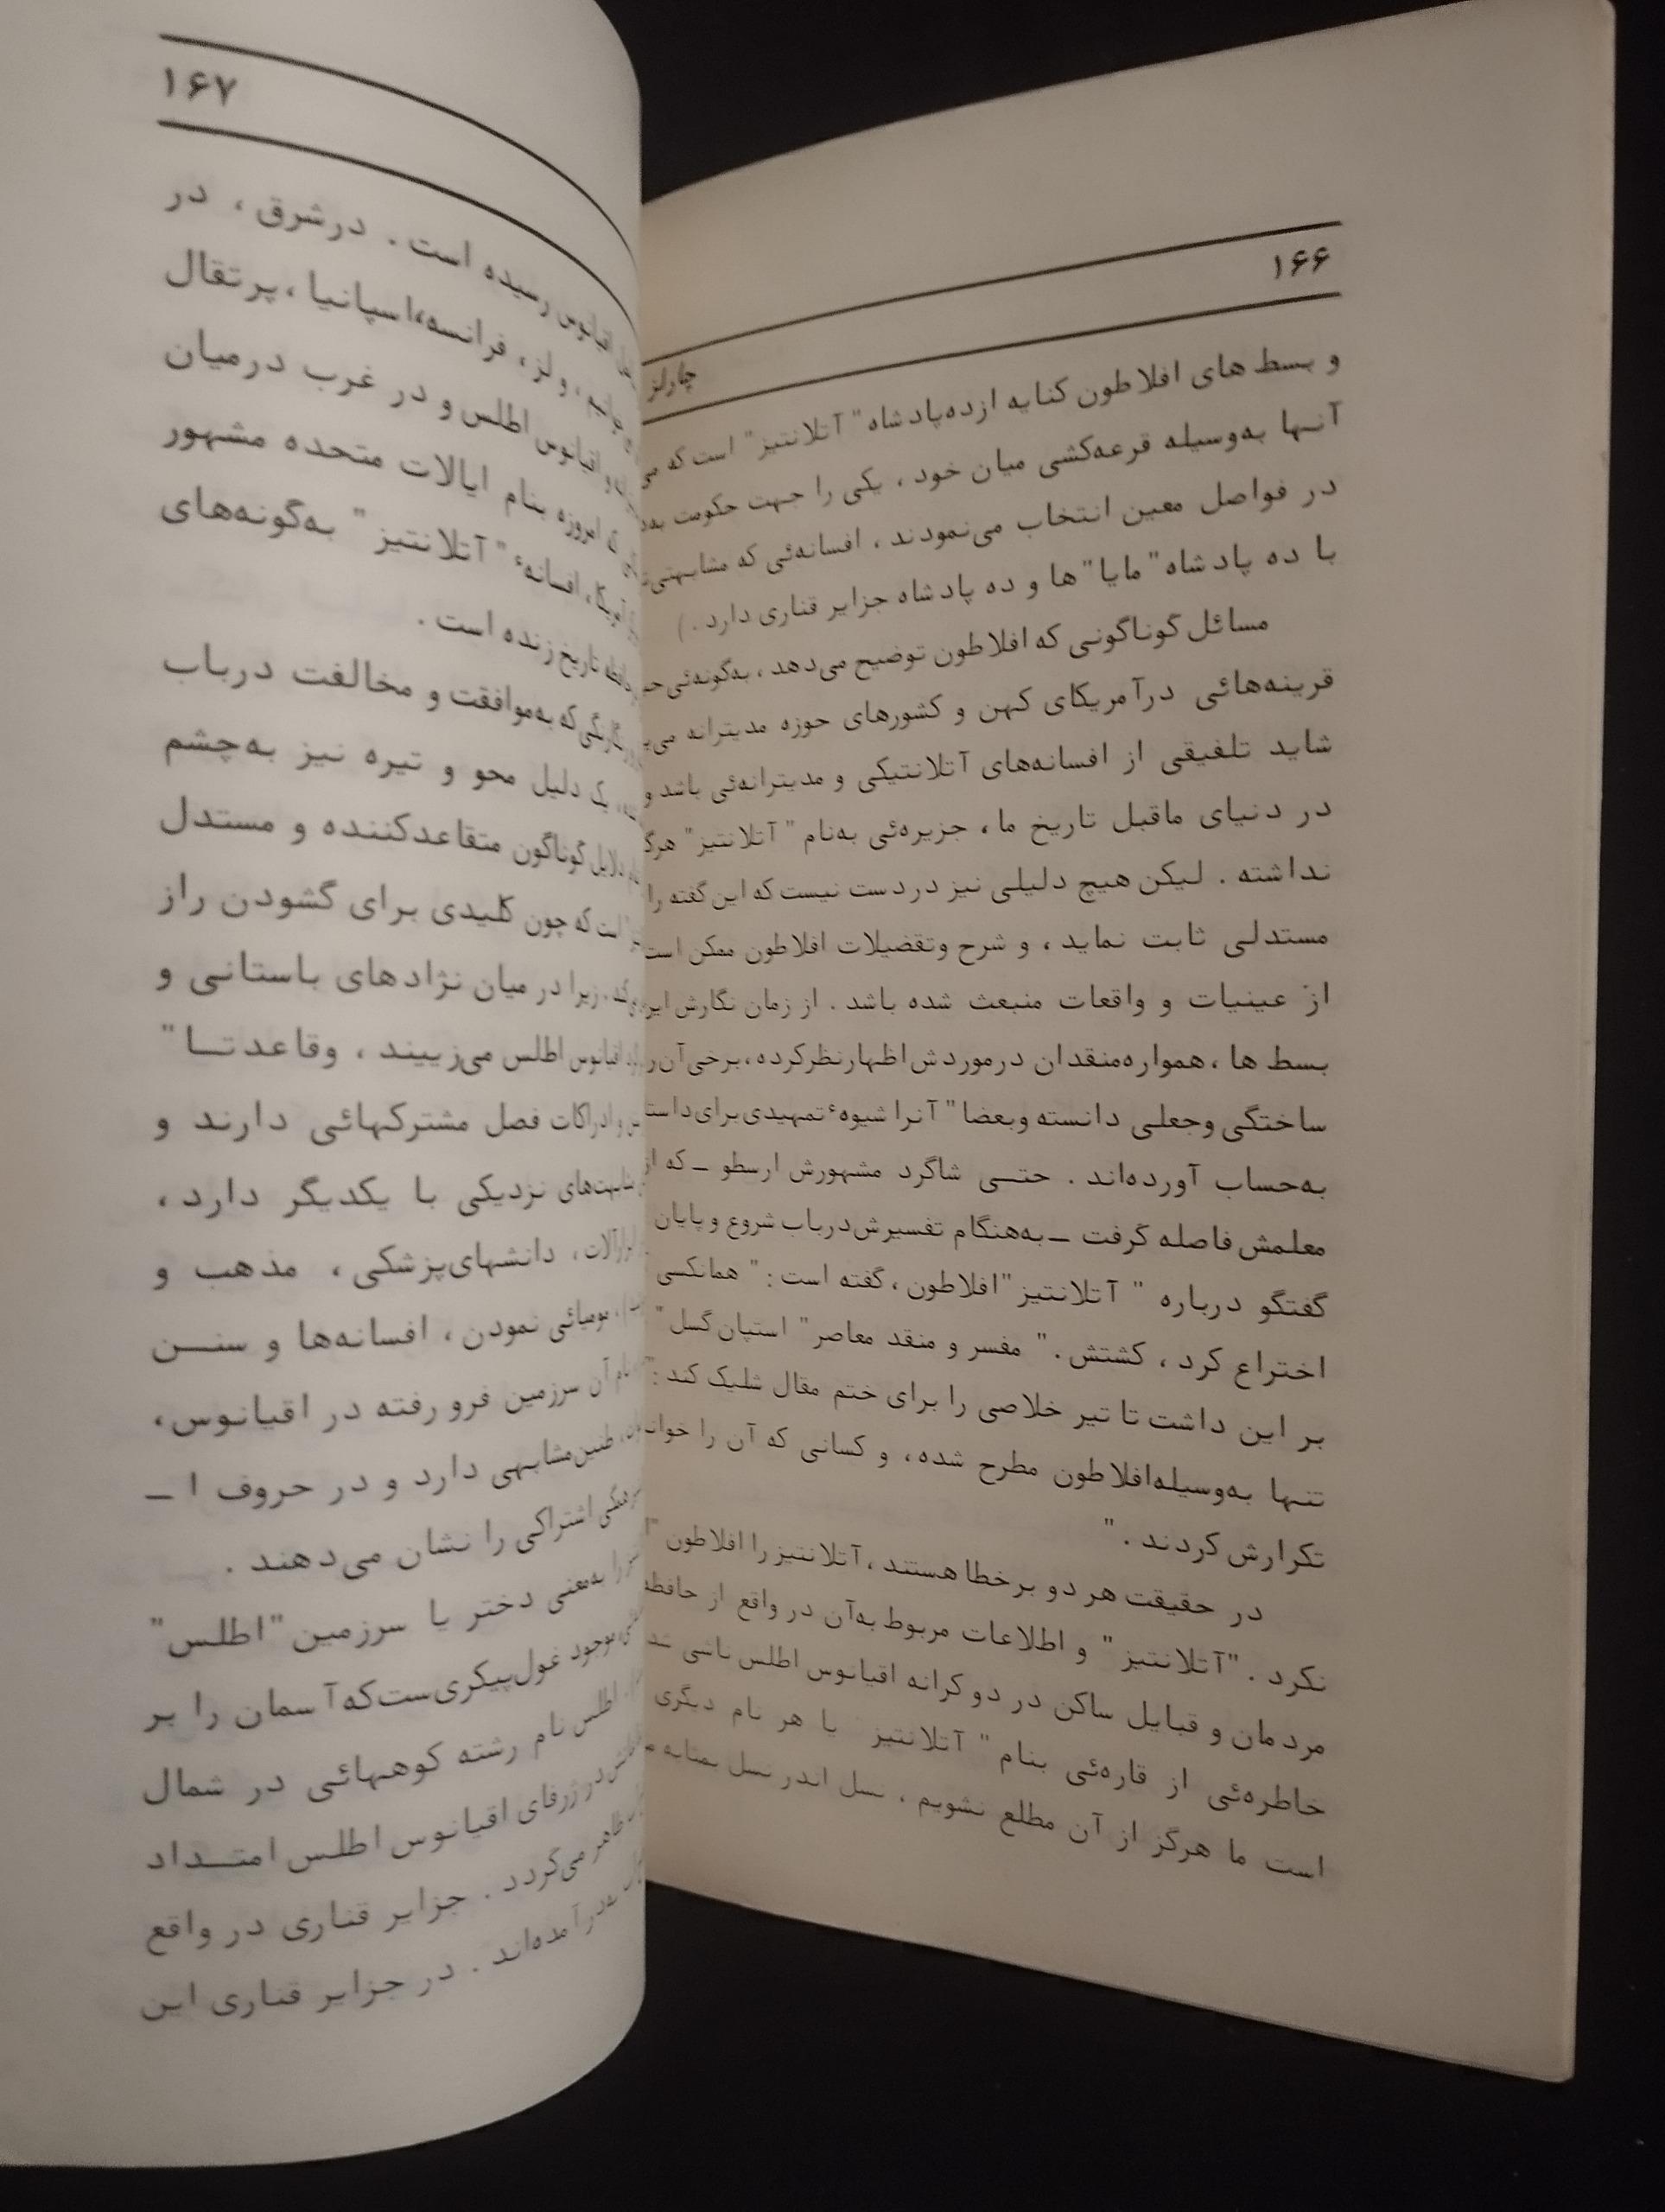 ۱۶۶
چارلز
و بسط های افلاطون کنایه ازده‌پادشاه "آتلانتیز" است که
آنها به‌وسیله قرعه‌کشی میان خود ، یکی را جهت حکومت
در فواصل معین انتخاب می‌نمودند ، افسانه‌ئی که
با ده پادشاه "مایا" ها و ده پادشاه جزایر قناری دارد . )
مسائل گوناگونی که افلاطون توضیح می‌دهد ، به‌گونه‌ئی
قرینه‌هائی درآمریکای کهن و کشورهای حوزه مدیترانه
شاید تلفیقی از افسانه‌های آتلانتیکی و مدیترانه‌ئی باشد و
در دنیای ماقبل تاریخ ما ، جزیره‌ئی به‌نام " آتلانتیز"
نداشته . لیکن هیچ دلیلی نیز در دست نیست که این گفته را
مستدلی ثابت نماید ، و شرح وتفضیلات افلاطون ممکن است
از عینیات و واقعات منبعث شده باشد . از زمان نگارش
بسط ها ، همواره‌منقدان درموردش‌اظهارنظرکرده ، برخی‌آن
ساختگی وجعلی دانسته وبعضا" آنرا شیوهٔ تمهیدی برای
به‌حساب آورده‌اند . حتـی شاگرد مشهورش ارسطو ـ که
معلمش فاصله گرفت ـ به‌هنگام تفسیرش درباب شروع و پایان
گفتگو درباره " آتلانتیز"افلاطون ، گفته است : " همانکسی
اختراع کرد ، کشتش ." مفسر و منقد معاصر" استپان گسل"
بر این داشت تا تیر خلاصی را برای ختم مقال شلیک کند :
تنها به‌وسیله‌افلاطون مطرح شده ، و کسانی که آن را
تکرارش کردند . "
در حقیقت هر دو برخطا هستند ، آتلانتیز را افلاطون
نکرد . "آتلانتیز" و اطلاعات مربوط به‌آن در واقع از
مردمان و قبایل ساکن در دو کرانه اقیانوس اطلس ناشی
خاطره‌ئی از قاره‌ئی بنام " آتلانتیز یا هر نام دیگری
است ما هرگز از آن مطلع نشویم ، نسل اندر نسل بمثابه
۱۶۷
اقیانوس رسیده است . درشرق ، در
ولز ، فرانسه،اسپانیا ، پرتقال
اقیانوس اطلس و در غرب درمیان
امروزه بنام ایالات متحده مشهور
افسانهٔ "آتلانتیز" به‌گونه‌های
تاریخ زنده است .
که به‌موافقت و مخالفت درباب
یک دلیل محو و تیره نیز به‌چشم
دلایل گوناگون متقاعدکننده و مستدل
است که چون کلیدی برای گشودن راز
زیرا در میان نژادهای باستانی و
اقیانوس اطلس می‌زییند ، وقاعدتـا "
و ادراکات فصل مشترکهائی دارند و
نزدیکی با یکدیگر دارد ،
دانشهای‌پزشکی ، مذهب و
مومیائی نمودن ، افسانه‌ها و سنـن
نام آن سرزمین فرو رفته در اقیانوس،
طنین‌مشابهی دارد و در حروف ا ـ
اشتراکی را نشان می‌دهند .
را به‌معنی دختر یا سرزمین "اطلس"
موجود غول‌پیکری‌ست‌که‌آسمان را بر
اطلس نام رشته کوههائی در شمال
در ژرفای اقیانوس اطلس امتـداد
ظاهر می‌گردد . جزایر قناری در واقع
درآمده‌اند . در جزایر قناری این